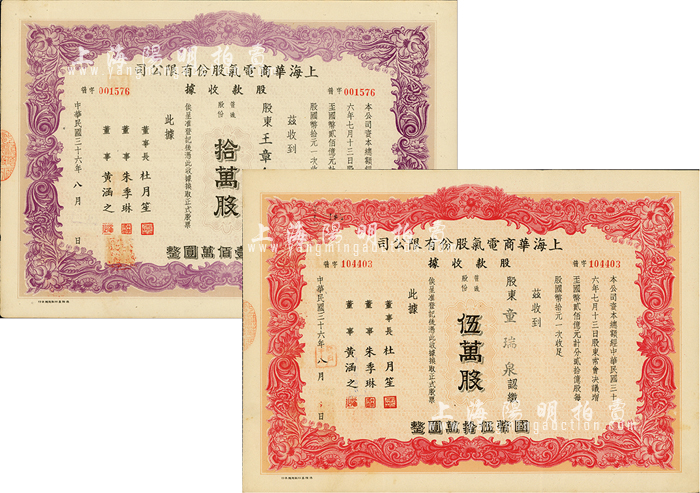 上海華商電氣股份有限公司
股款收據
儲字 001576
本公司資本總額經
六年七月十三日股
至國幣貳佰億元計
股國幣拾元一次收
茲收到
股東王章
普通
股份
拾萬股
俟呈准登記後憑此收據換取正式股票
此據
董事長 杜月笙
董事 朱季琳
董事 黃涵之
中華民國三十六年八月 日
壹佰萬圓整
上海華商電氣股份有限公司
股款收據
儲字 104403
本公司資本總額經中華民國三十
六年七月十三日股東常會決議增
至國幣貳佰億元計分貳拾億股每
股國幣拾元一次收足
茲收到
股東童瑞泉認繳
普通
股份
伍萬股
俟呈准登記後憑此收據換取正式股票
此據
董事長 杜月笙
董事 朱季琳
董事 黃涵之
中華民國三十六年八月 日
國幣伍拾萬圓整
上海陽明拍賣
www.yangmingauction.com
上海陽明拍賣
www.yangmingauction.com